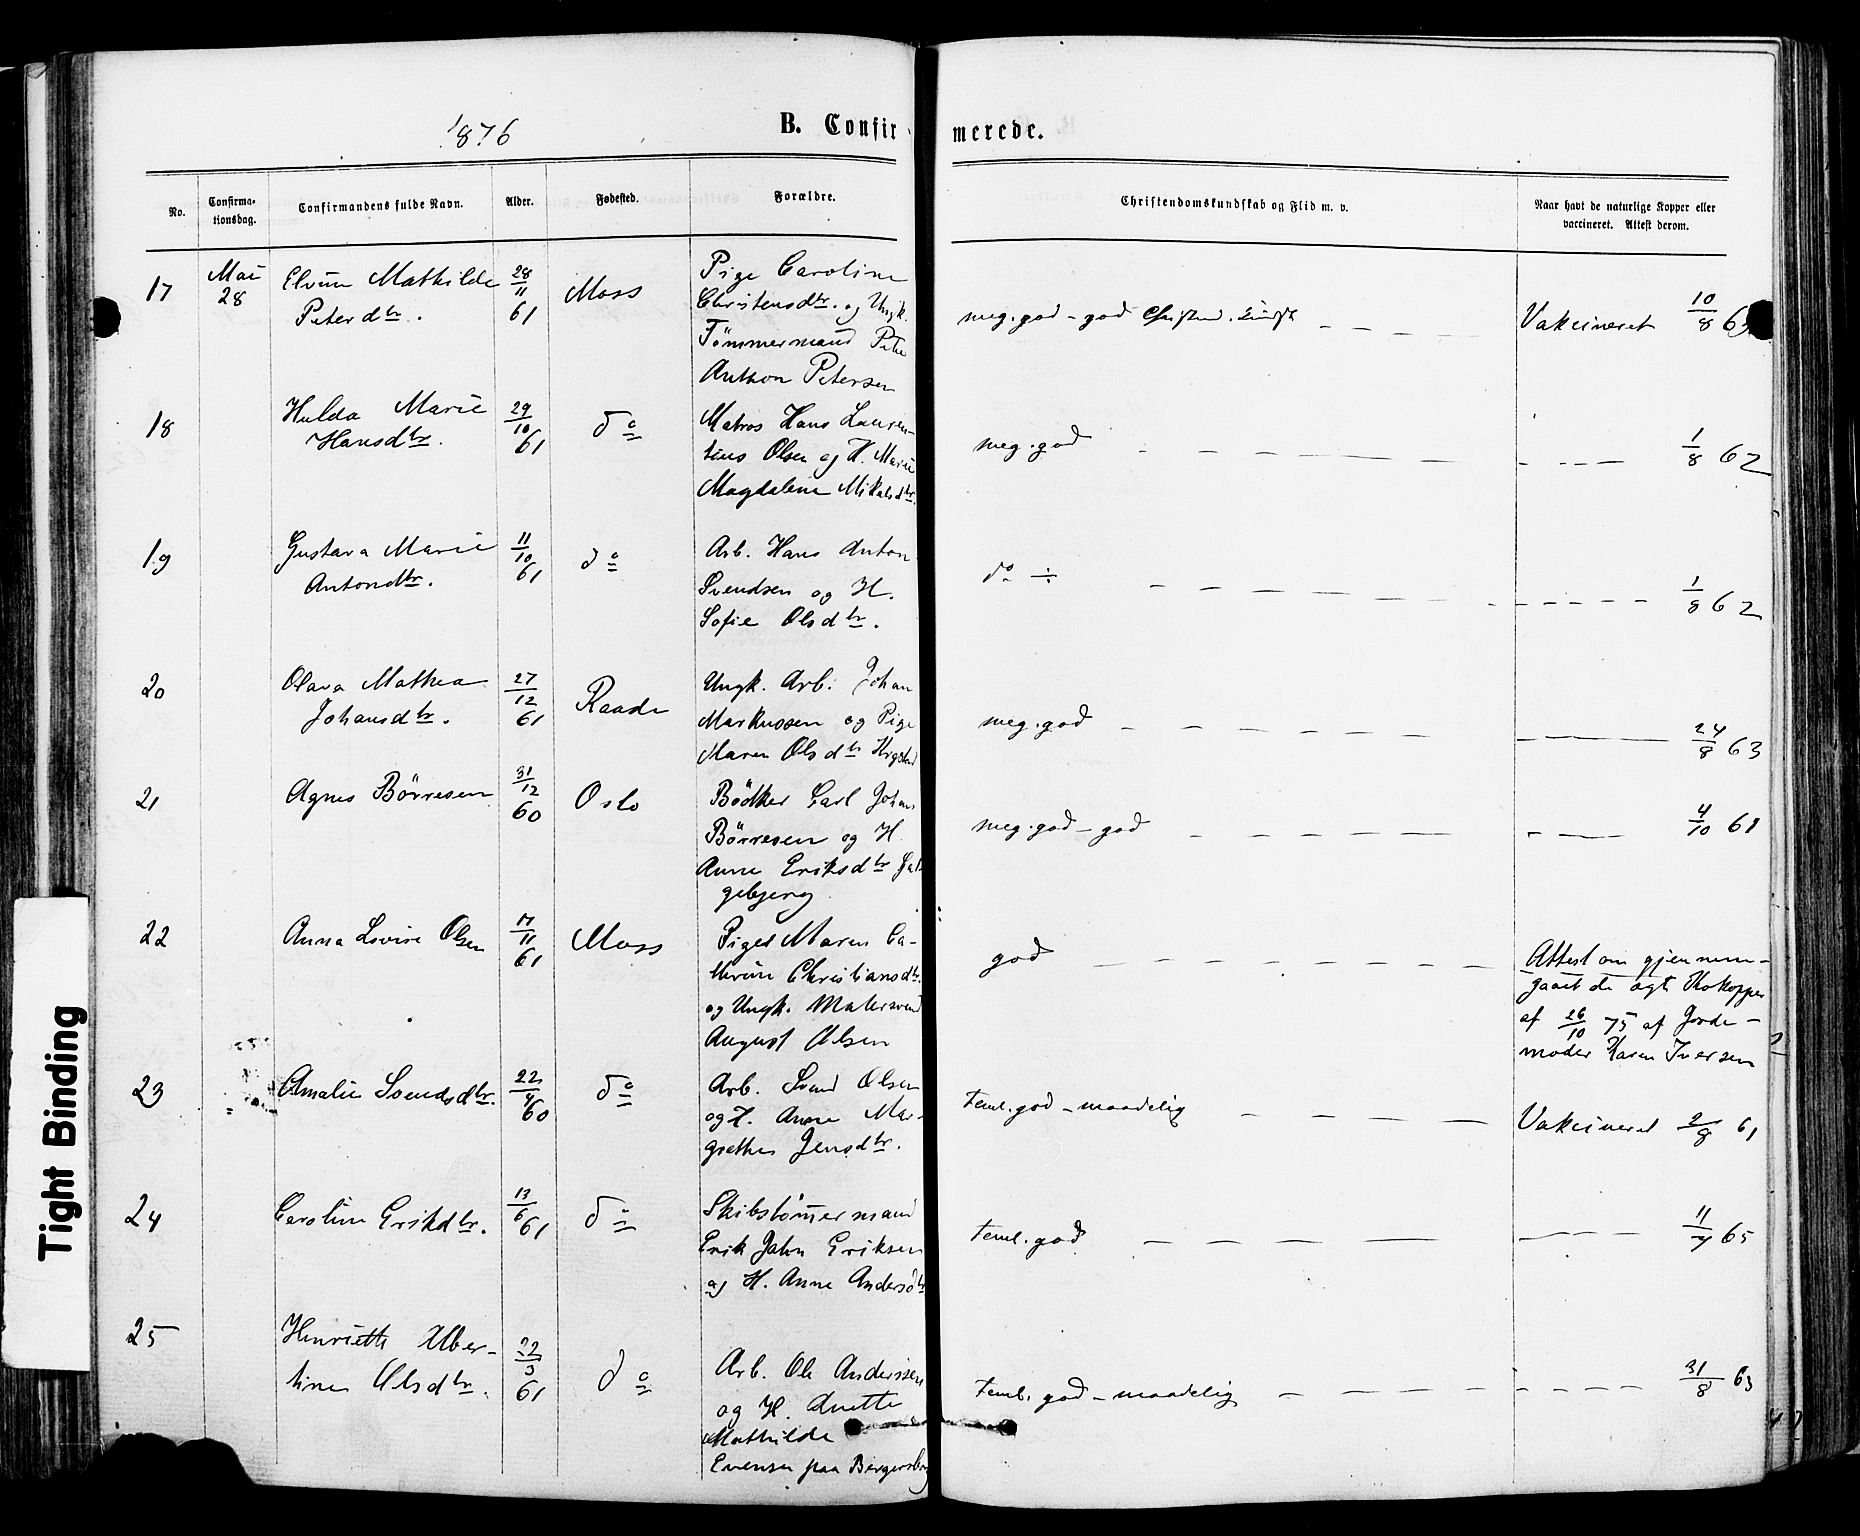 1876
B. Confirmerede.
No. Confirmationsdag. Confirmandens fulde Navn. Alder. Fødested. Forældre. Christendomskundskab og Flid m. v. Naar havt de naturlige Kopper eller vaccineret. Attest derom.
17 Mai 28 Mathilde Peterdtr. 28/11 61 Moss
Pige Caroline
Christensdtr. og Ungk.
Tömmermand
Anthon Petersen
meg.god - god Vakcineret 10/8
18 Hulda Marie Hansdtr. 29/10 61 do
Matros Hans Lauren-
tius Olsen og H. Marie
Magdalene Mikalsdtr.
meg.god 1/8 62
19 Gustava Marie Antondtr. 11/10 61 do
Arb. Hans Anton
Svendsen og H.
Sofie Olsdtr.
do 1/8 62
20 Olava Mathea Johansdtr. 27/12 61 Raade
Ungk. Arb. Johan
Markussen og Pige
Maren Olsdtr
meg.god 24/8 63
21 Agnes Börresen 31/12 60 Oslo
Bödker Carl Johan
Börresen og H.
Anne Eriksdtr Gal-
gebjerg
meg.god - god 4/10 61
22 Anna Lovise Olsen 17/11 61 Moss
Pigen Maren Ca-
thrine Christiansdtr.
og Ungk. Malersvend
August Olsen
god
Attest om gjennem-
gaaet de ægte Kokopper
af 26/10 75 af Jorde-
moder Karen Iversen
23 Amalie Svendsdtr. 22/4 60 do
Arb. Svend Olsen
og H. Anne Mar-
grethe Jensdtr.
Teml.god - maadelig Vakcineret 2/9 61
24 Caroline Erikdtr. 13/6 61 do
Skibstömmermand
Erik John Eriksen
og H. Anne Andersdtr
Teml.god 11/7 65
25 Henriette Alber-
tine Olsdtr. 22/3 61 do
Arb. Ole Anderssen
og H. Anette
Mathilde
Evensen paa
Teml. god - maadelig 31/8 63
Tight Binding